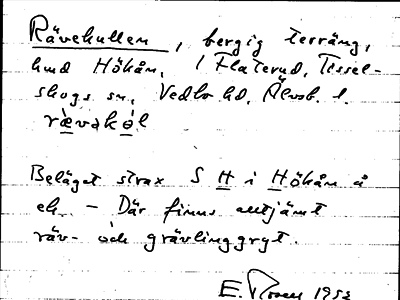 Rävekullen, bergig terräng,
hmd Hökån, i Flaterud, Tissel-
skogs sn, Vedbo hd, Älvsb. l.
rævəkəl
Beläget strax S H i Hökån å
ek. – Där finns alltjämt
räv- och grävlinggryt.
E. 1952